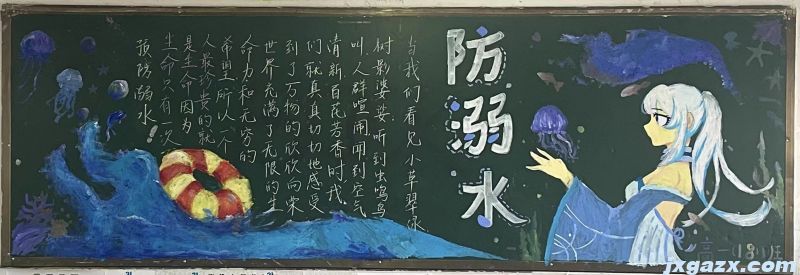 防溺水
当我们看见小草翠绿
树影婆娑听到虫鸣鸟
叫人群喧闹闻到空气
清新百花芳香时我
们就真真切切地感受
到了万物的欣欣向荣
世界充满了无限的生
命力和无穷的
希望所以一个
人最珍贵的就
是生命因为
生命只有一次
预防溺水！
高一(18)班
jxgazx.com